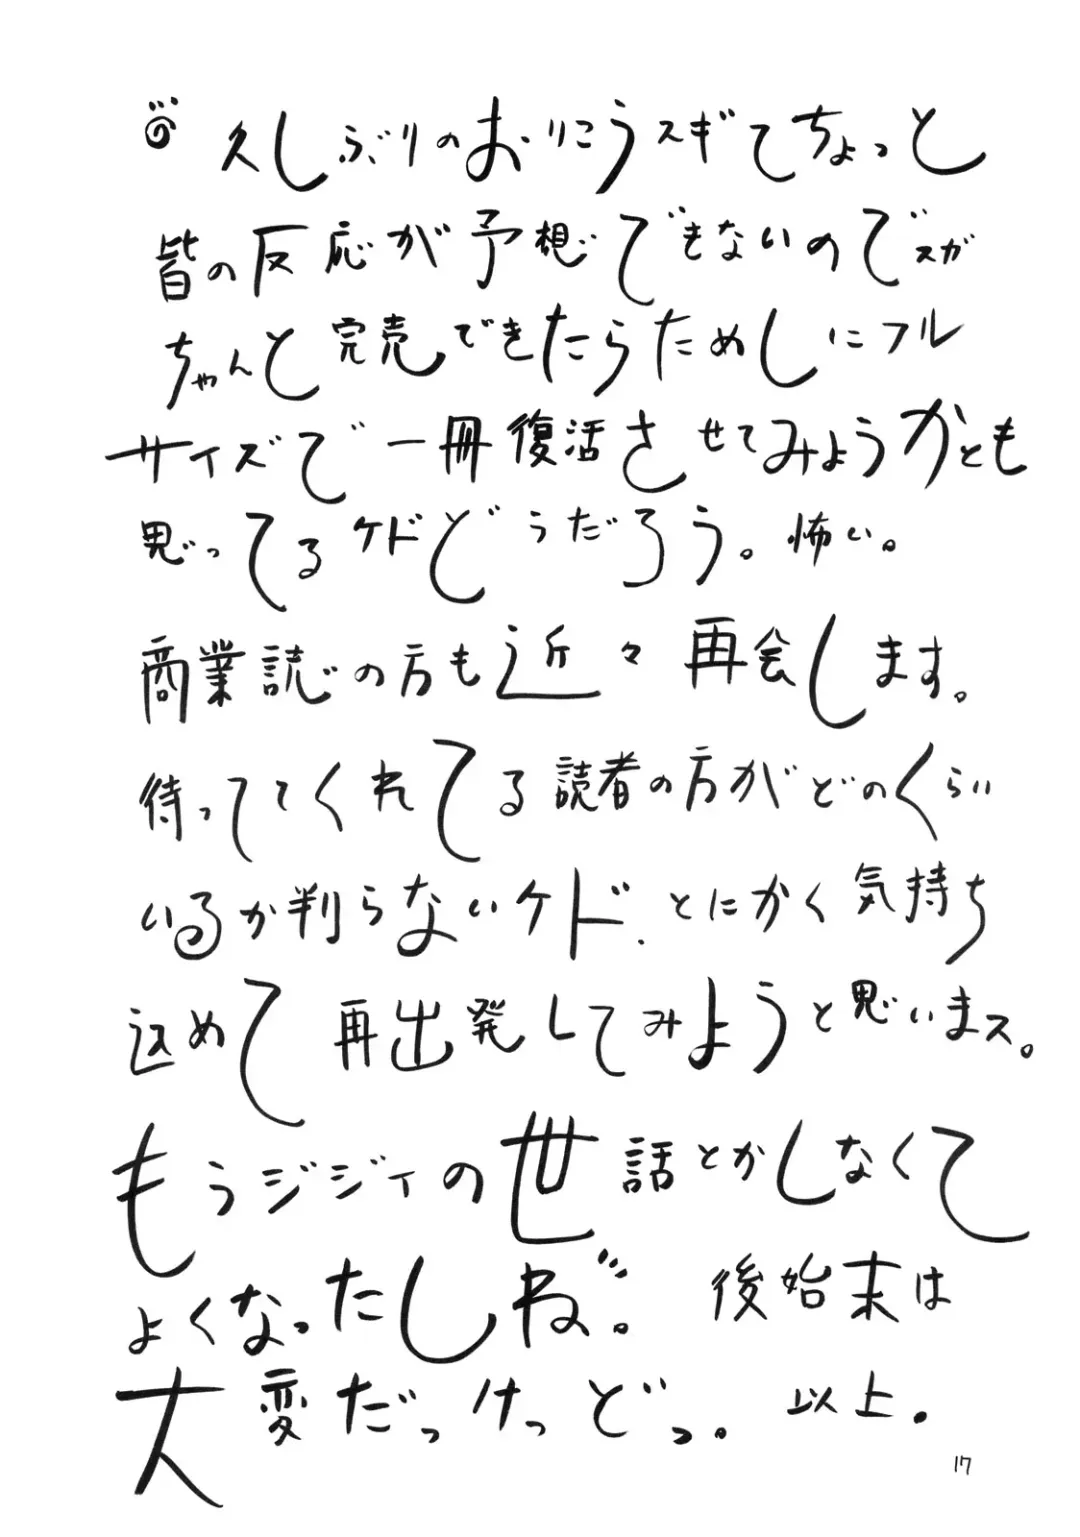 久しぶりのおりこうスギてちょっと
皆の反応が予想できないのでスガ
ちゃんと完売できたらためしにフル
サイズで一冊復活させてみようかとも
思ってるケドどうだろう。怖い。
商業誌の方も近々再会します。
待っててくれてる読者の方がどのくらい
いるか判らないケド、とにかく気持ち
込めて再出発してみようと思いまス。
もうジジィの世話とかしなくて
よくなったしね。後始末は
大変だっけっどっ。以上。
17